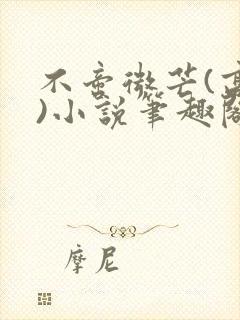 不啻微芒(高
)小說筆趣閣
摩尼